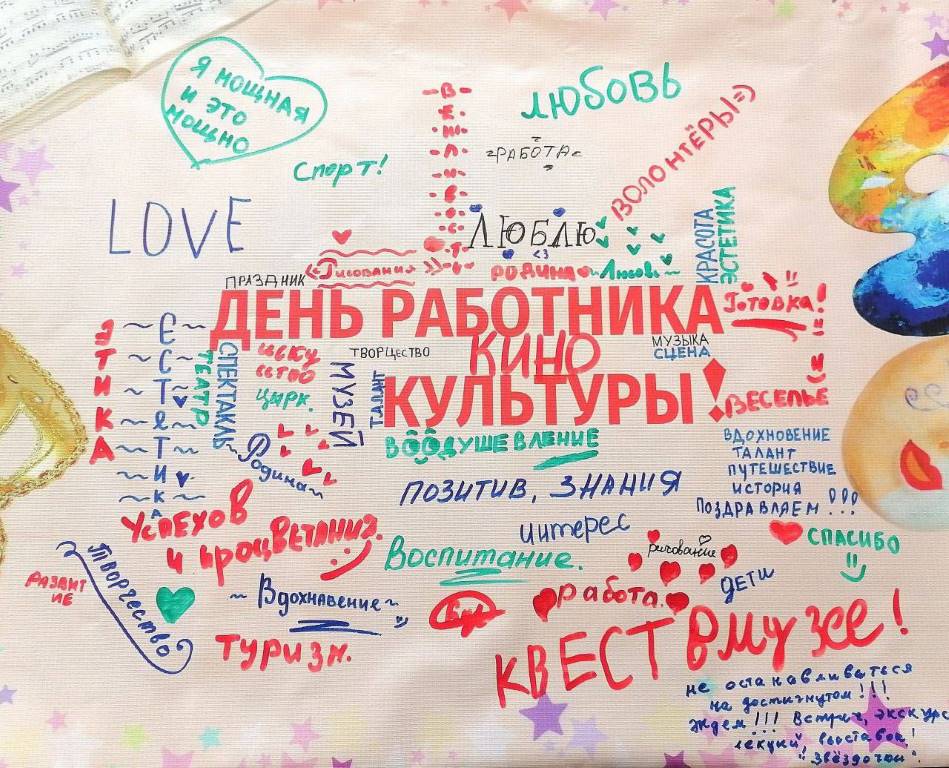 Я МОЩНАЯ
И ЭТО
МОЩНО
ЛЮБОВЬ
Спорт!
РАБОТА
ВОЛОНТЁРЫ=)
LOVE
ЛЮБЛЮ
<3
КРАСОТА
ЭСТЕТИКА
ПРАЗДНИК
«Рисование»
РОДИНА
~Любовь~
ДЕНЬ РАБОТНИКА
Готовка!
КИНО
КУЛЬТУРЫ!
ТВОРЧЕСТВО
МУЗЫКА
СЦЕНА
ЭТИКА
~Э~
~С~
~Т~
~е~
~Т~
~И~
~К~
А
ТЕАТР
СПЕКТАКЛЬ
иску
ство
цирк.
МУЗЕЙ
ТАЛАНТ
ВЕСЕЛЬЕ
ВООДУШЕВЛЕНИЕ
~Родина~
ВДОХНОВЕНИЕ
ТАЛАНТ
ПУТЕШЕСТВИЕ
ИСТОРИЯ
ПОЗДРАВЛЯЕМ!!!
ПОЗИТИВ, ЗНАНИЯ
Успехов
и процветания.
интерес
Воспитание.
рисование
СПАСИБО
ТВОРЧЕСТВО
РАЗВИТ
ИЕ
~Вдохнавение~
работа.
дети
туризм.
КВЕСТ в музее!
не останавливаться
на достигнутом!!!
Ждем!!! Встреч, экскурс
лекций, выставок!
"Звёздочки"